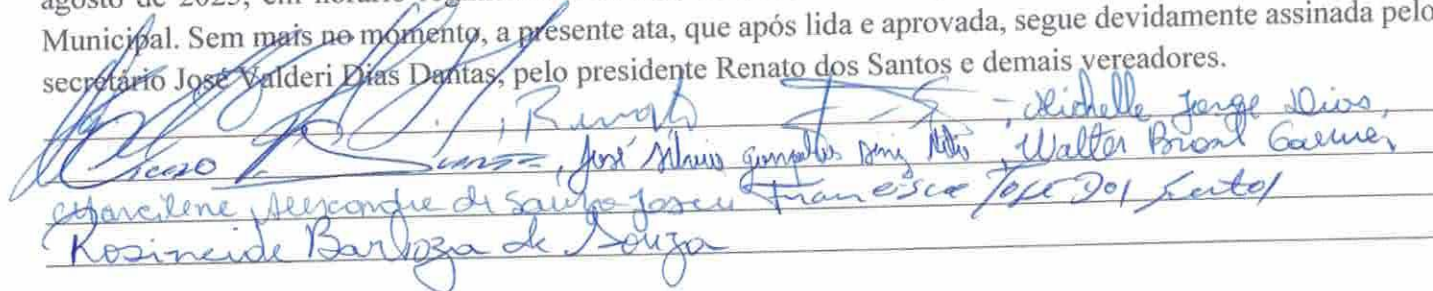 agosto de 2025, em horário
Municipal. Sem mais no momento, a presente ata, que após lida e aprovada, segue devidamente assinada pelo
secretário José Valderi Dias Dantas, pelo presidente Renato dos Santos e demais vereadores.
, Renato - , Michelle Jorge Dias,
Cicero , José Silvio Gonçalves Diniz Neto , Walter
Marcilene Alexandre de Francisco José Dos Santos
Rosineide Barboza de Souza